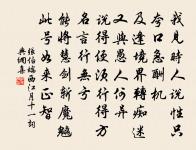 我見時人說性只
夸口急酬機
及逢境界轉痴迷
又與愚人何异
說得便須行得方
名言行無虧
能將慧劍斬魔魑
此號如來正智
張伯端西江月十一詞